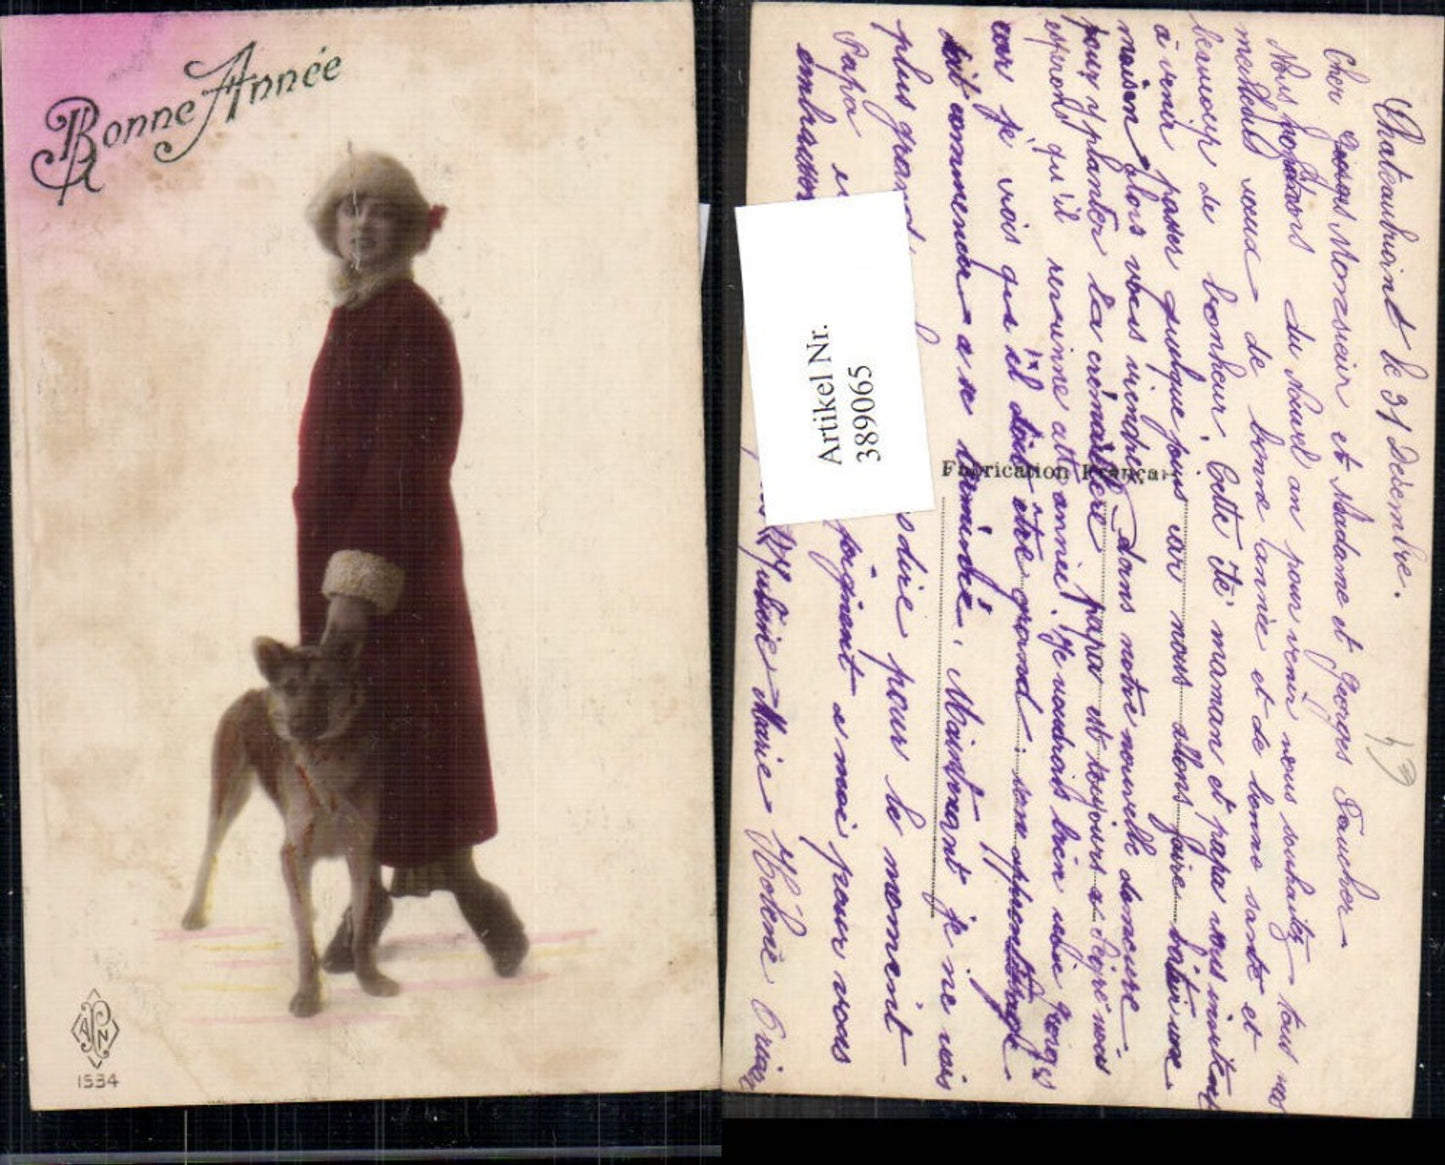 Bonne Année
A P N
1534
Artikel Nr.
389065
Fabrication França
Chateaubriant le 31 Décembre.
Cher Monsieur et Madame et Georges Faucher
Nous du Nouvel an pour venir vous souhaiter tous nos
meilleurs vœux de bonne année et de bonne santé et
beaucoup de bonheur. Cette été maman et papa vous invitent
à venir passer quelque jours car nous allons faire bâtir une
maison alors vous viendrez dans notre nouvelle demeure
pour y planter la crémaillère papa est toujours a
esperons qu'il cette année. Je voudrais bien voir Georges
car je vois que il doit être grand
doit commencer a se terminé. Maintenant je ne vois
plus grand dire pour le moment
Papa joignent a moi pour vous
embrasser
Marie Hélène